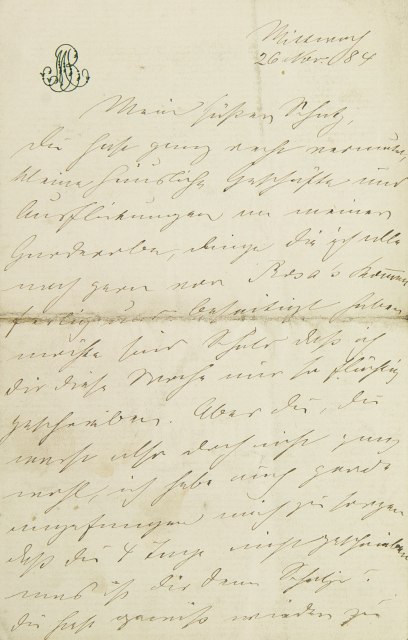 Mittwoch
26 Nov. 84
Mein süßer Schatz,
Du hast ganz recht vermutet,
kleine häusliche Geschäfte und
Ausflickungen an meiner
Garderobe, Dinge die ich alle
noch gern vor Rosa's Kommen
fertig und beseitigt haben
möchte sind Schuld daß ich
Dir diese Woche nur so flüchtig
geschrieben. Aber Du, Du
warst also doch nicht ganz
wohl, ich habe auch grade
angefangen mich zu sorgen
daß Du 4 Tage nicht geschrieben
was ist Dir denn Schatzi?
Du hast gewiß wieder zu